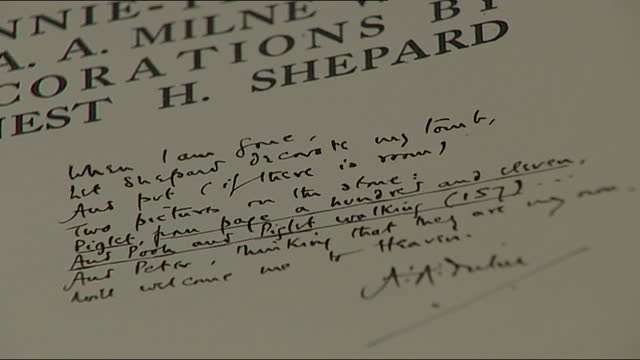 NNIE-T
A. A. MILNE W
CORATIONS BY
NEST H. SHEPARD
When I am gone,
Let Shepard decorate my tomb,
And put (if there is room)
Two pictures on the stone:
Piglet, from page a hundred and eleven,
And Pooh and Piglet walking (157) ...
And Peter, thinking that they are my own,
Will welcome me to Heaven.
A. A. Milne